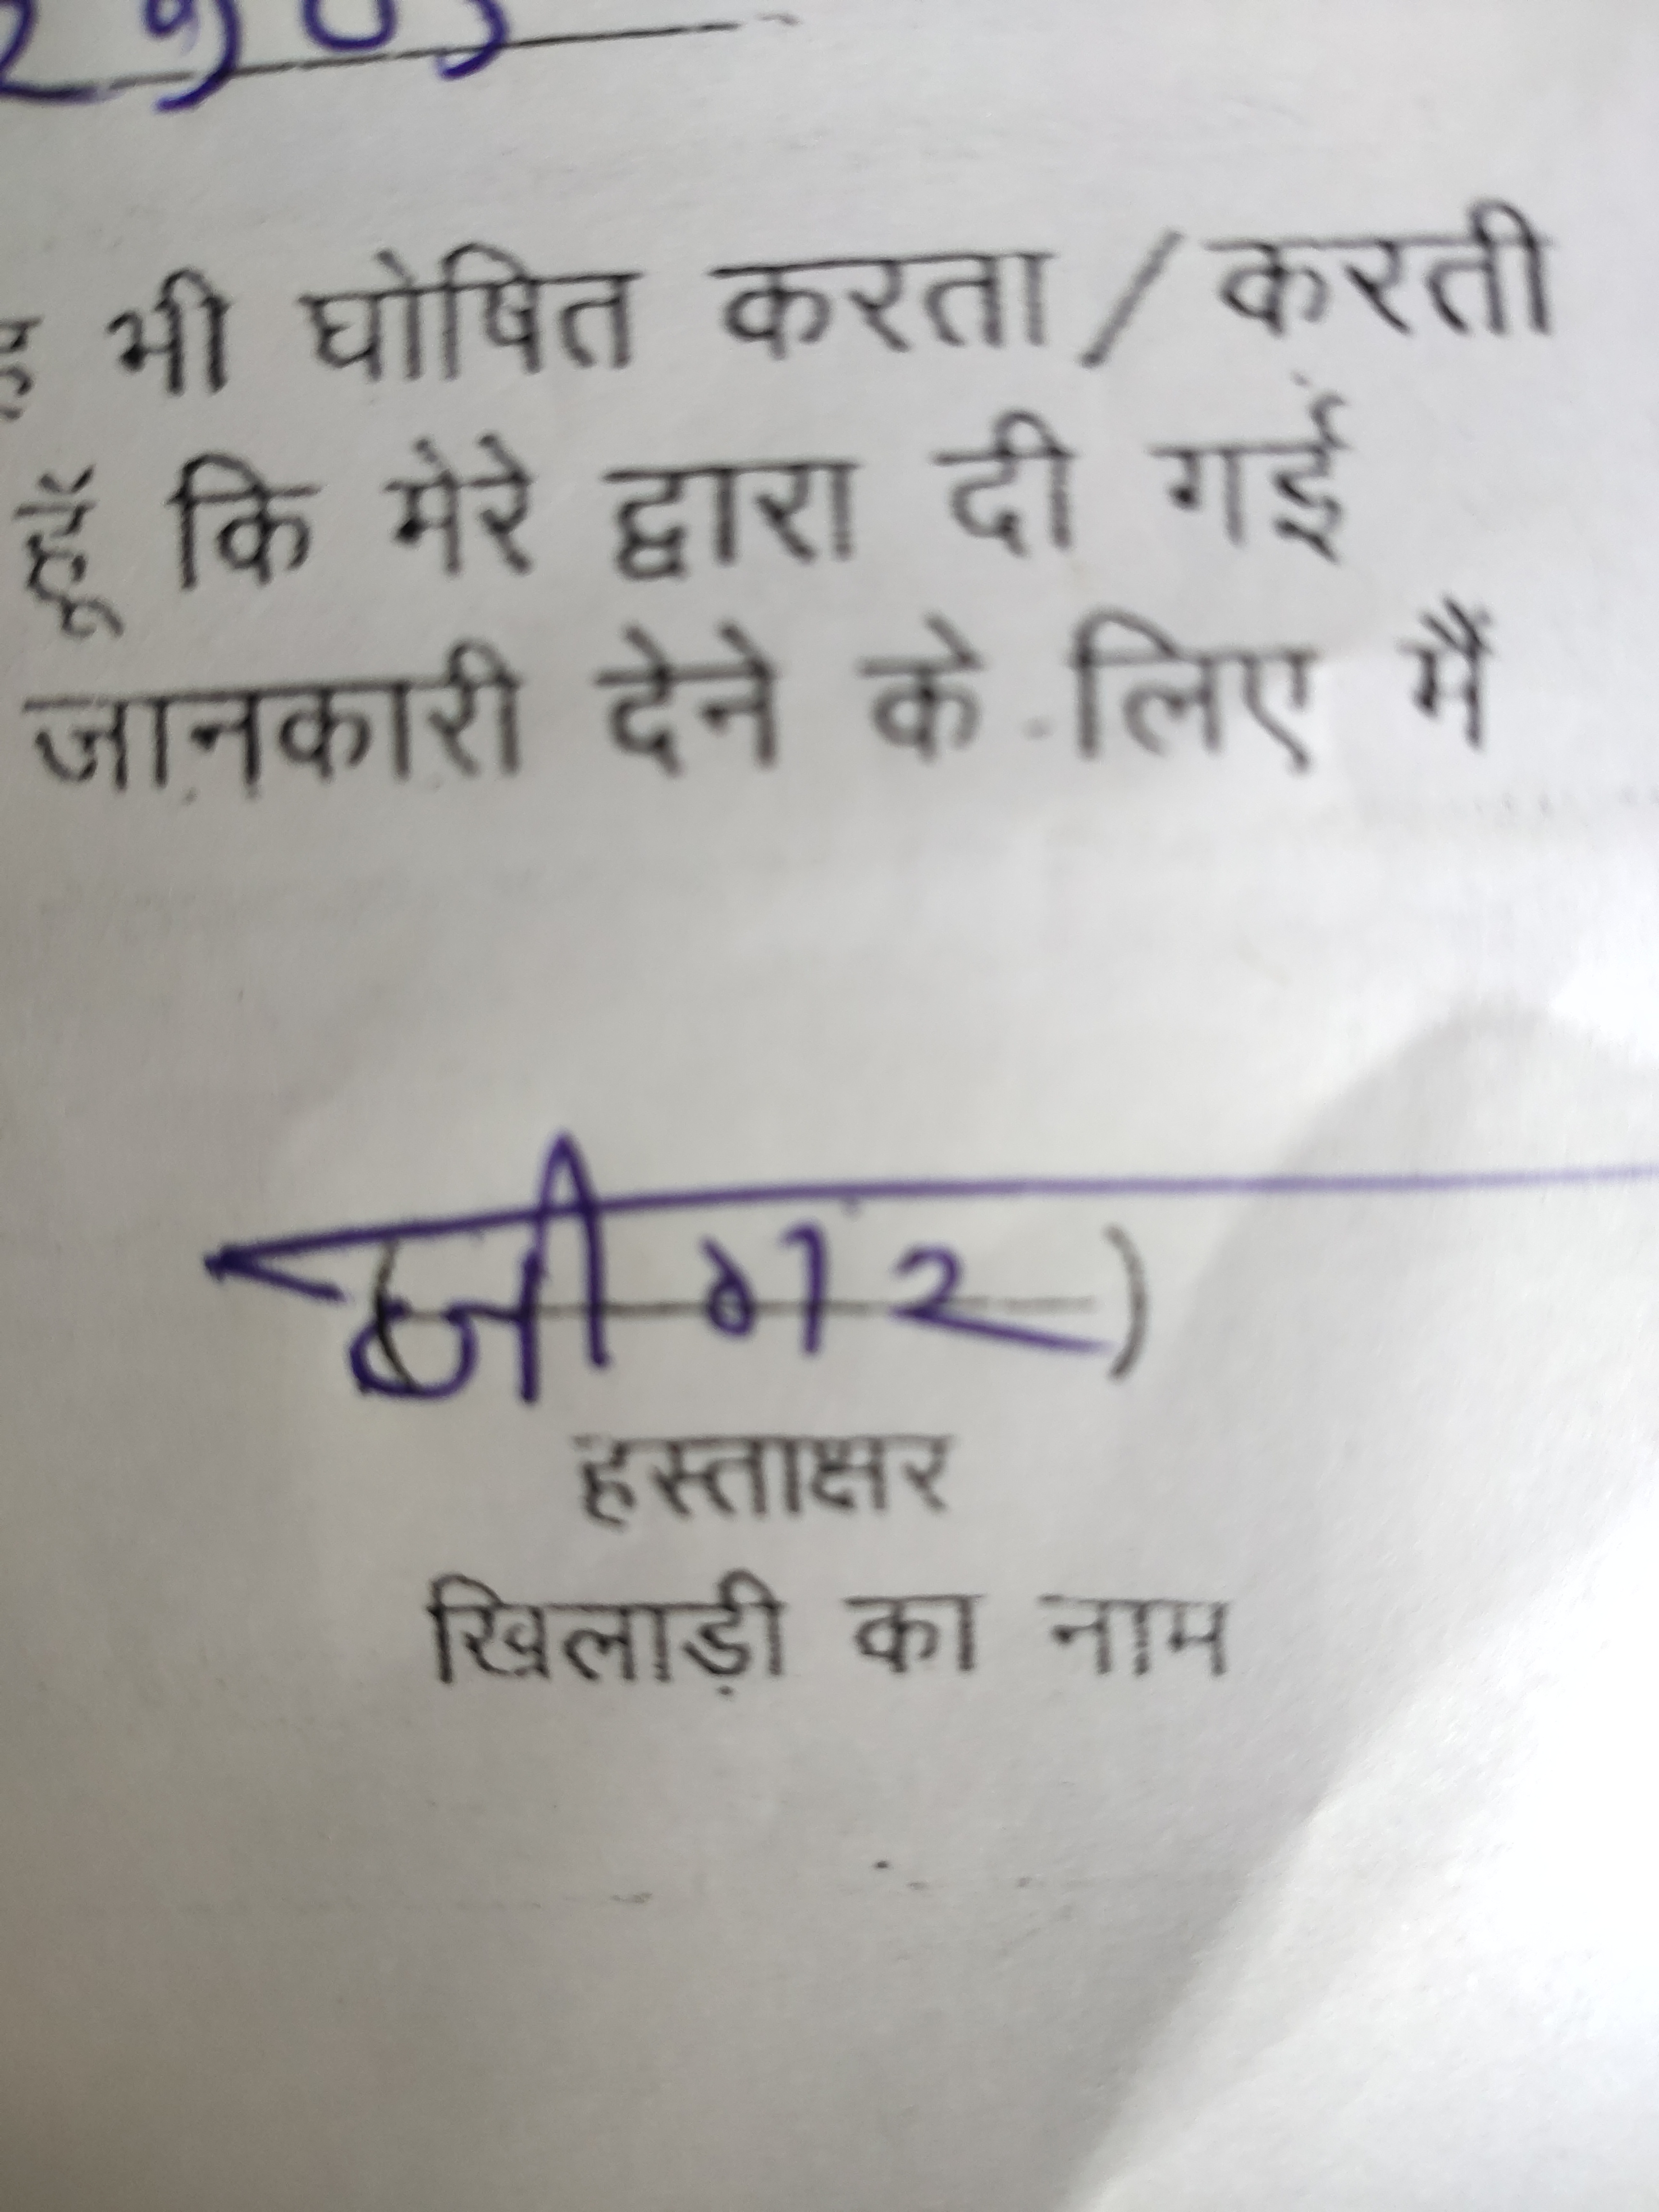 भी घोषित करता / करती
हूँ कि मेरे द्वारा दी गई
जानकारी देने के लिए मैं
(जीगर)
हस्ताक्षर
खिलाड़ी का नाम